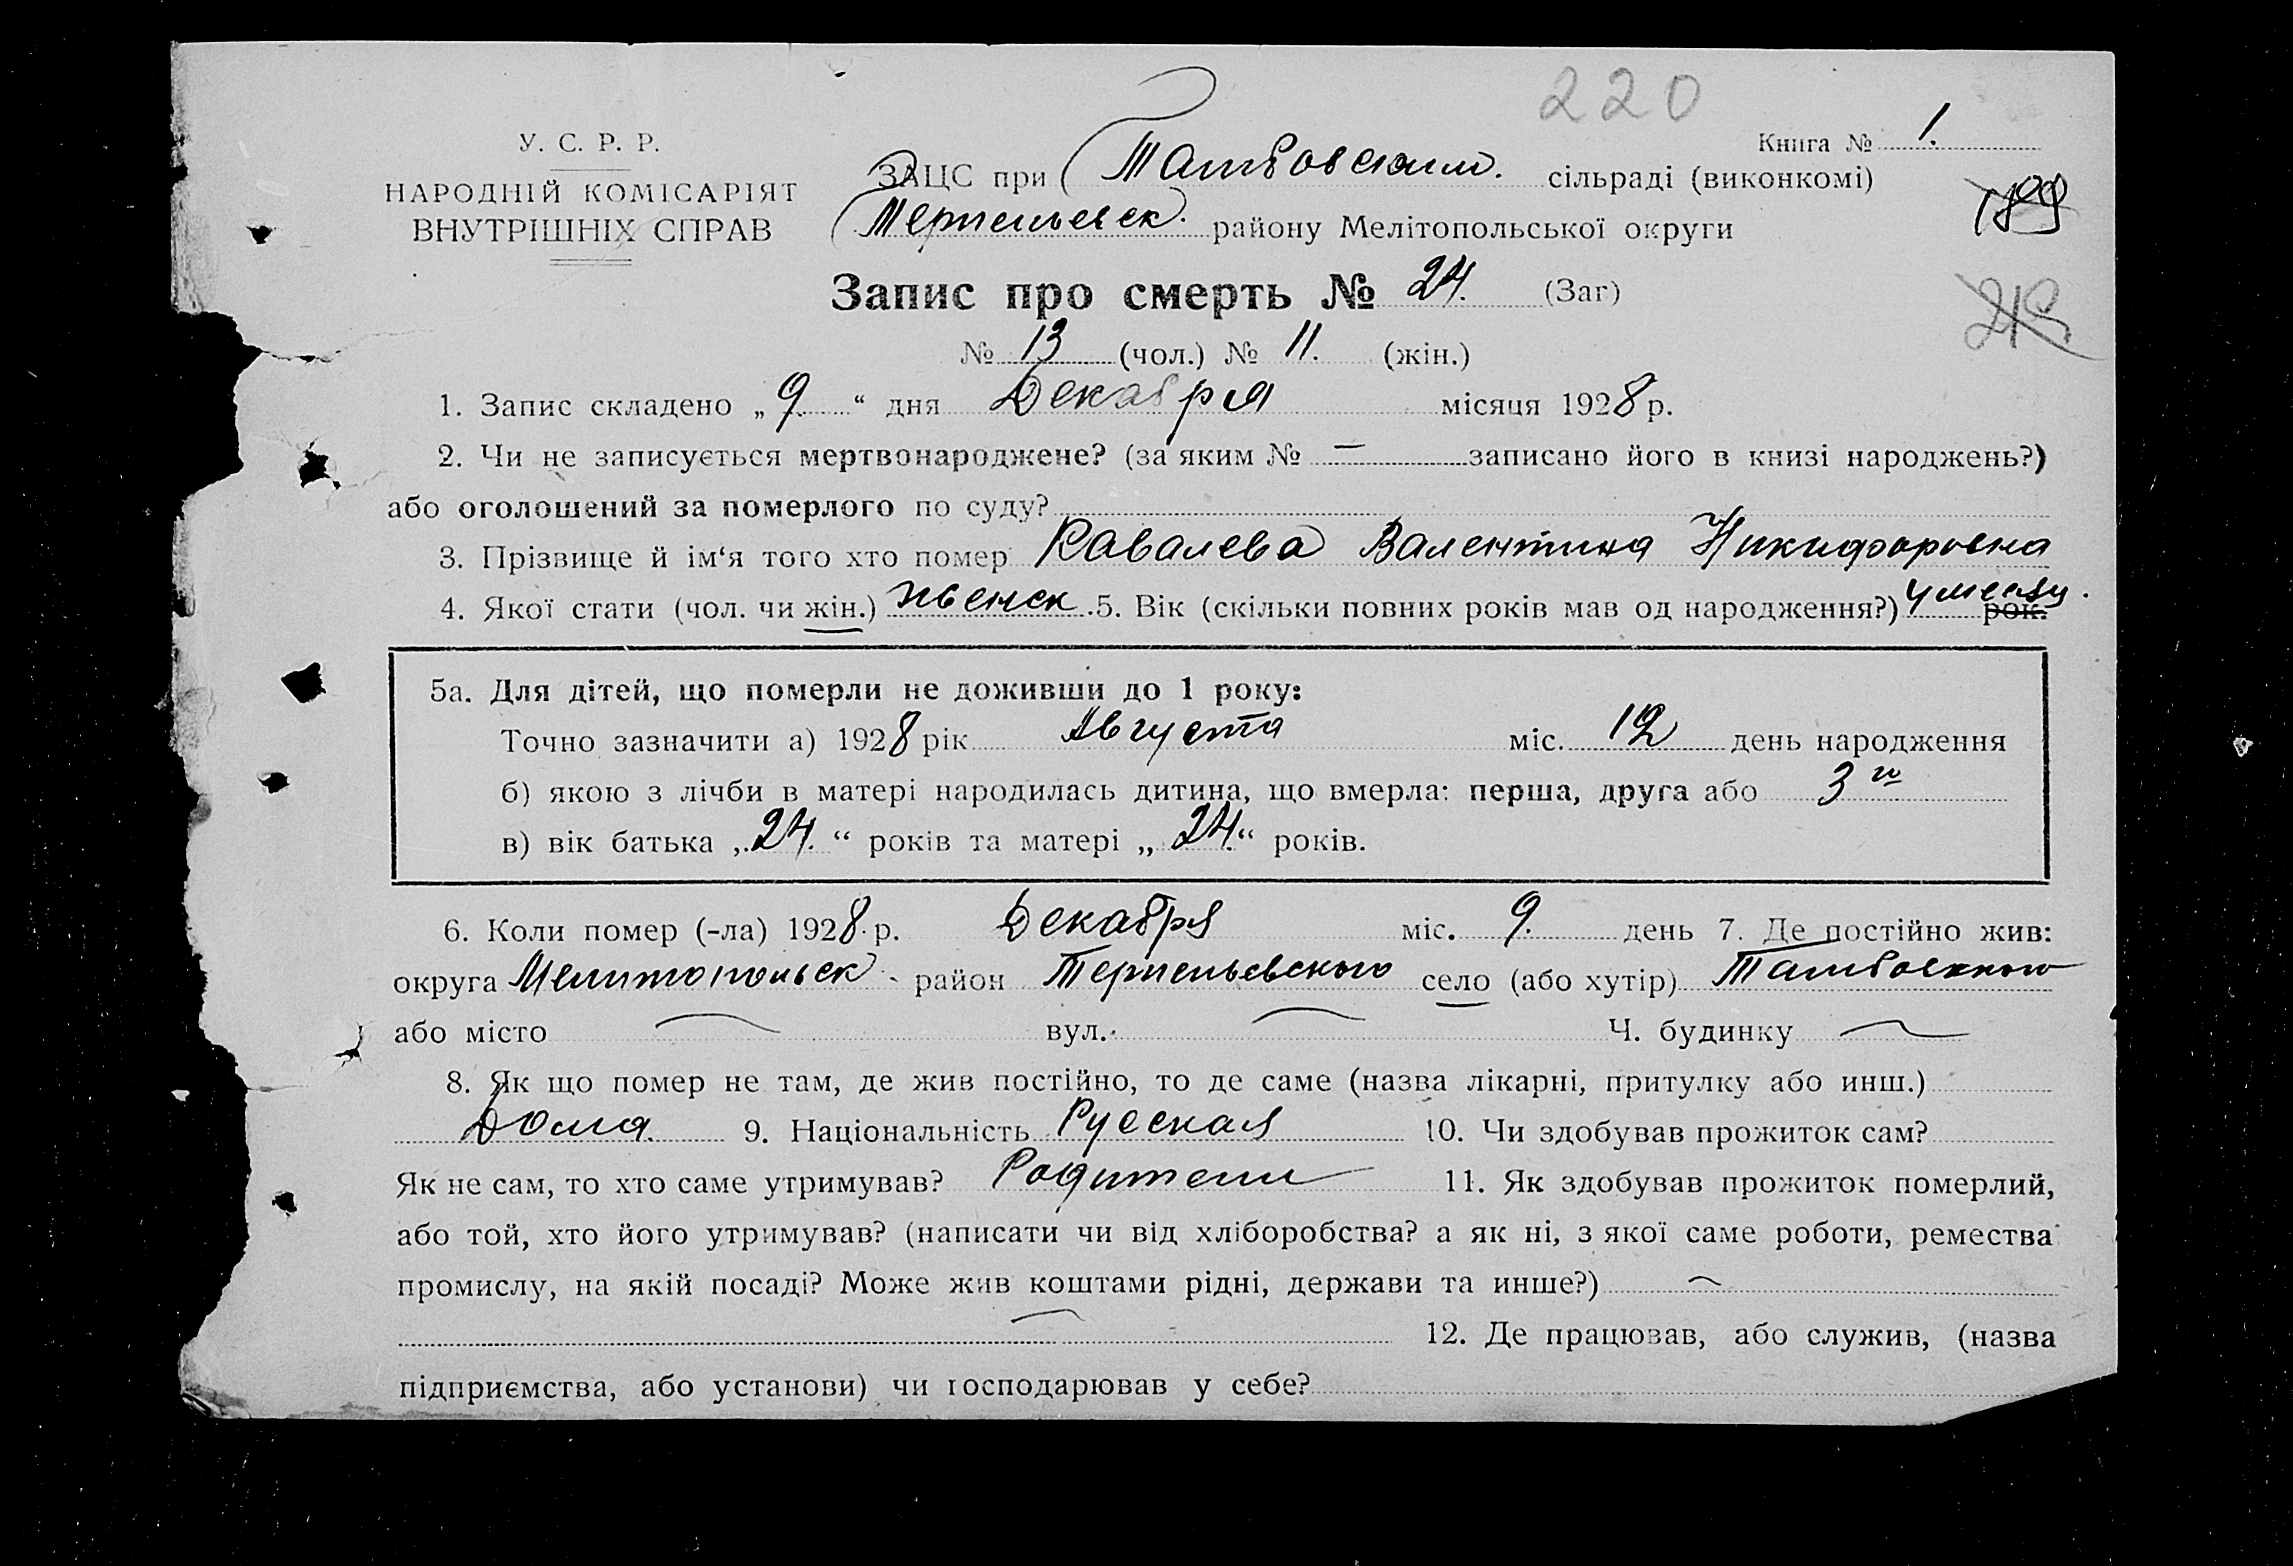 220
У. С. Р. Р.
НАРОДНІЙ КОМІСАРІЯТ
ВНУТРІШНІХ СПРАВ
Книга № 1.
ЗАЦС при Тамбовским. сільраді (виконкомі)
Терпеньевск. району Мелітопольської округи
Запис про смерть № 24. (Заг)
№ 13 (чол.) № 11. (жін.)
1. Запис складено „ 9 “ дня Декабря місяця 1928 р.
2. Чи не записується мертвонароджене? (за яким № — записано його в книзі народжень?)
або оголошений за померлого по суду?
3. Прізвище й ім‘я того хто помер Кавалева Валентина Никифоровна
4. Якої стати (чол. чи жін.) женск. 5. Вік (скільки повних років мав од народження?) 4 месяц. рок.
5а. Для дітей, що померли не доживши до 1 року:
Точно зазначити а) 1928 рік Августа міс. 12 день народження
б) якою з лічби в матері народилась дитина, що вмерла: перша, друга або 3
в) вік батька „24.“ років та матері „24.“ років.
6. Коли помер (-ла) 1928 р. Декабря міс. 9. день 7. Де постійно жив:
округа Мелитопольск. район Терпеньевского село (або хутір) Тамбовского
або місто — вул. — Ч. будинку —
8. Як що помер не там, де жив постійно, то де саме (назва лікарні, притулку або инш.)
Дома. 9. Національність Русская 10. Чи здобував прожиток сам?
Як не сам, то хто саме утримував? Родители 11. Як здобував прожиток померлий,
або той, хто його утримував? (написати чи від хліборобства? а як ні, з якої саме роботи, ремества
промислу, на якій посаді? Може жив коштами рідні, держави та инше?) —
— 12. Де працював, або служив, (назва
підприємства, або установи) чи господарював у себе?